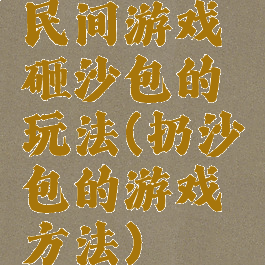 民间游戏
砸沙包的
玩法(扔沙
包的游戏
方法)